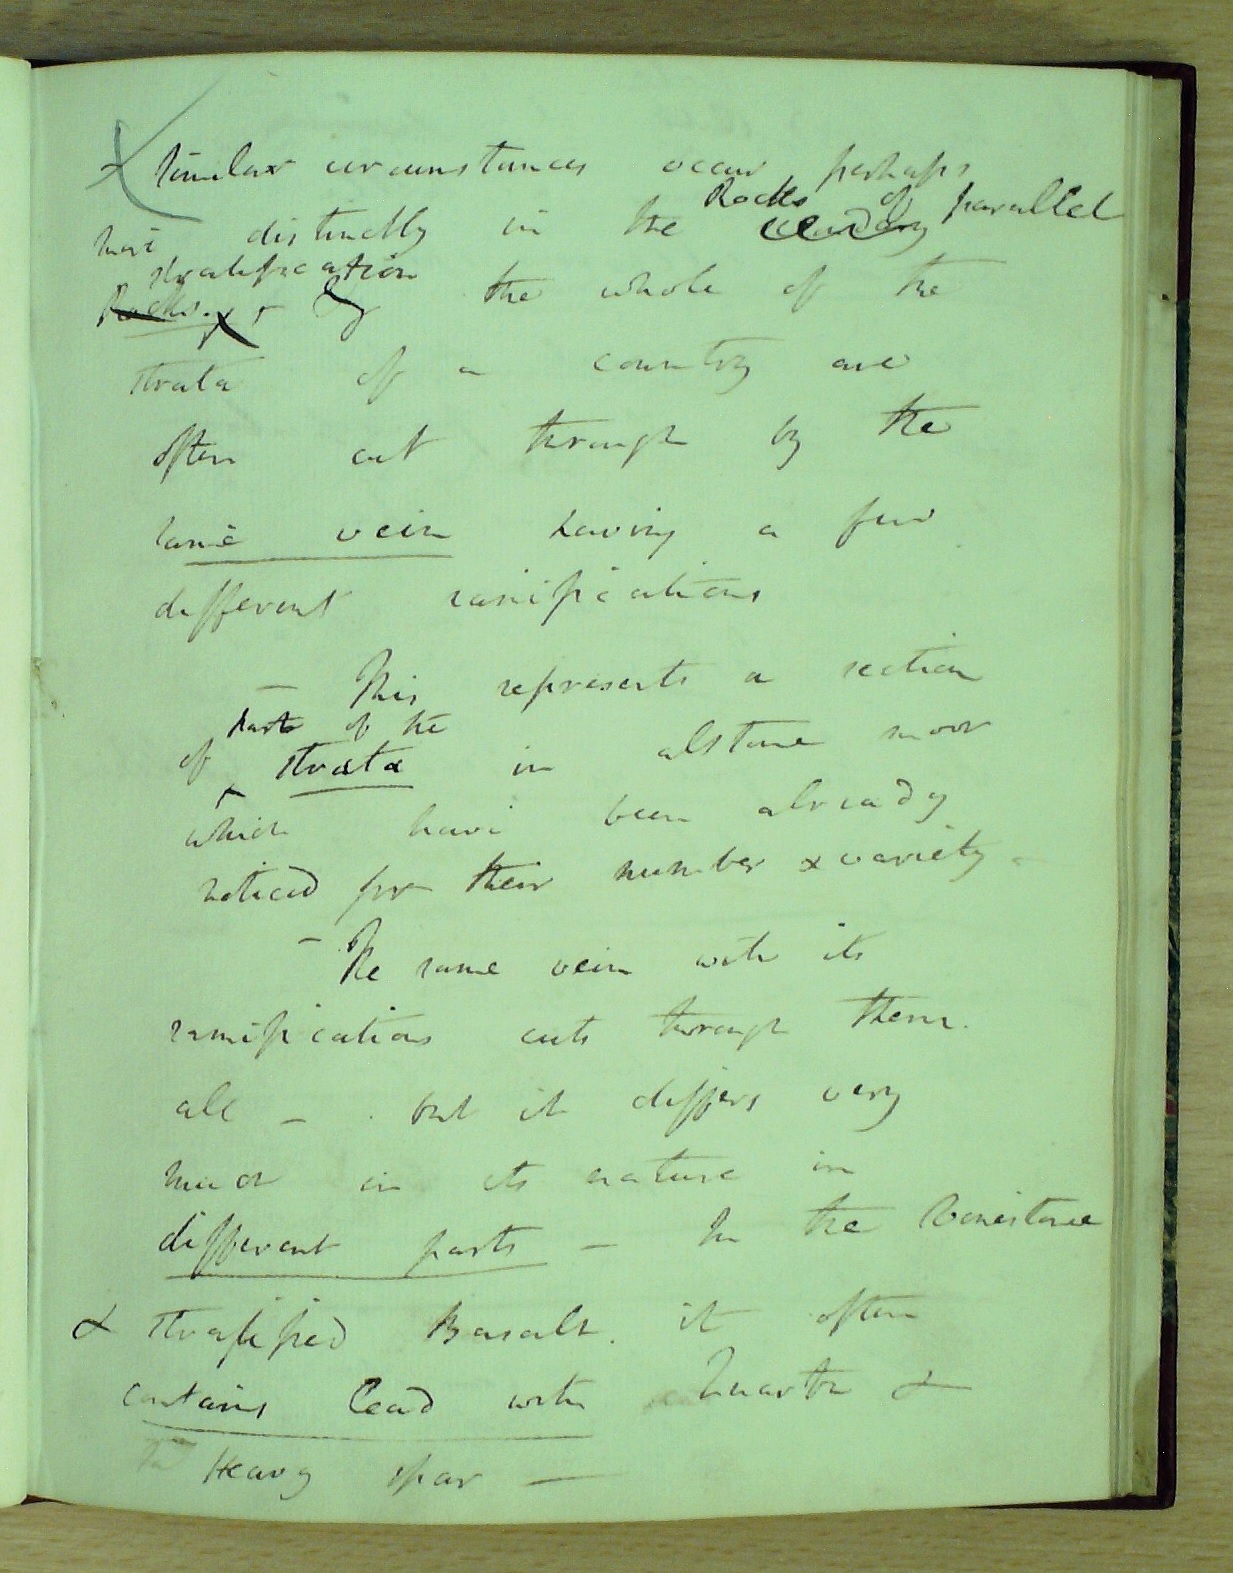 Similar circumstances occur perhaps
Rocks of parallel
more distinctly in the secondary
stratification
Rocks. & by the whole of the
strata of a country are
often cut through by the
same vein having a few
different ramifications
— This represents a section
part of the
of strata in alstone moor
which have been already
noticed for their number & variety
— The same vein with its
ramifications cuts through them
all — but it differs very
much in its nature in
different parts — In the limestone
& stratified Basalt. it often
contains lead with Quartz &
Heavy spar —